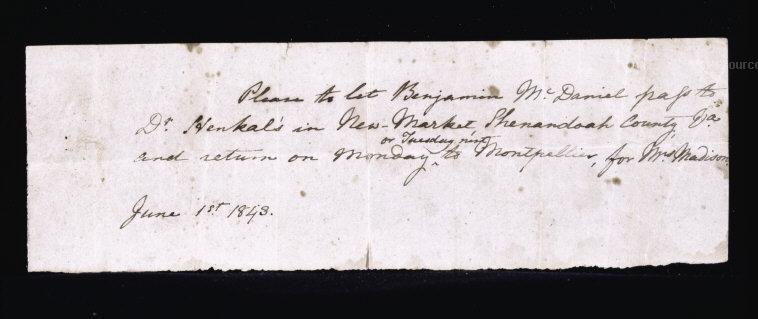 Please to let Benjamin McDaniel pass to
Dr Henkal's in New-Market, Shenandoah County, Va
and return on Monday or Tuesday next to Montpellier, for Mrs Madison
June 1st 1843.
ource